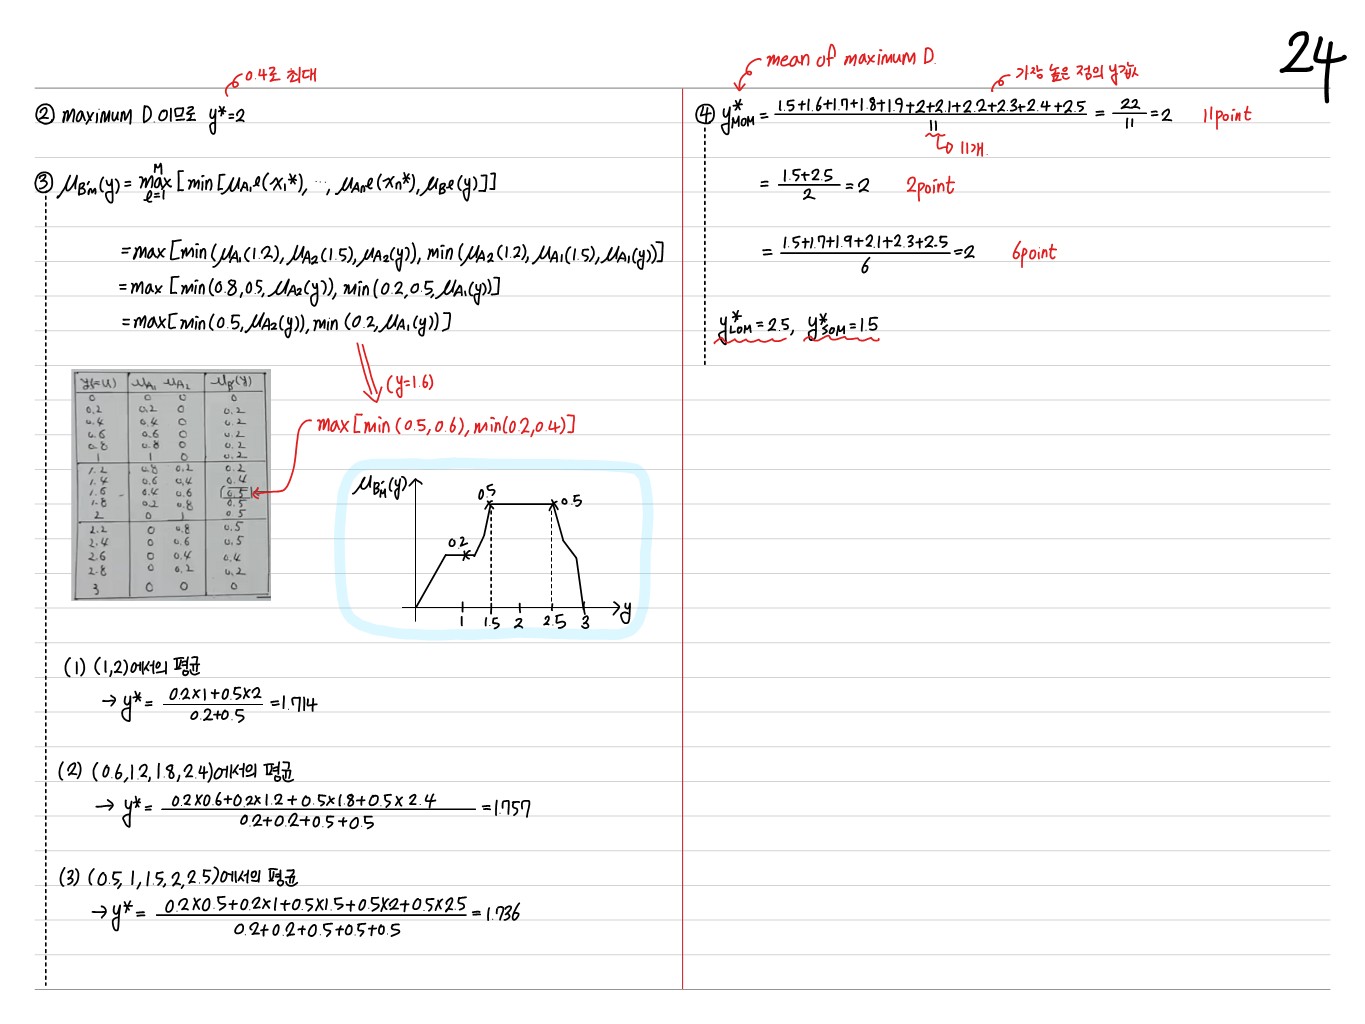 24
0.4로 최대
② maximum D.이므로 y*=2
③ μB'M(y) = max(ℓ=1, M) [min[μA1ℓ(x1*), …, μAnℓ(xn*), μBℓ(y)]]
= max[min(μA1(1.2), μA2(1.5), μA2(y)), min(μA2(1.2), μA1(1.5), μA1(y)]
= max [min(0.8, 0.5, μA2(y)), min(0.2, 0.5, μA1(y)]
= max[min(0.5, μA2(y)), min (0.2, μA1(y))]
(y=1.6)
max[min(0.5, 0.6), min(0.2, 0.4)]
y(=u) μA1 μA2 μB'(y)
0 0 0 0
0.2 0.2 0 0.2
0.4 0.4 0 0.2
0.6 0.6 0 0.2
0.8 0.8 0 0.2
1 1 0 0.2
1.2 0.8 0.2 0.2
1.4 0.6 0.4 0.4
1.6 0.4 0.6 0.5
1.8 0.2 0.8 0.5
2 0 1 0.5
2.2 0 0.8 0.5
2.4 0 0.6 0.5
2.6 0 0.4 0.4
2.8 0 0.2 0.2
3 0 0 0
μB'M(y)
0.5 0.5
0.2
1 1.5 2 2.5 3 y
(1) (1,2)에서의 평균
→ y* = (0.2×1+0.5×2)/(0.2+0.5) = 1.714
(2) (0.6, 1.2, 1.8, 2.4)에서의 평균
→ y* = (0.2×0.6+0.2×1.2+0.5×1.8+0.5×2.4)/(0.2+0.2+0.5+0.5) = 1.757
(3) (0.5, 1, 1.5, 2, 2.5)에서의 평균
→ y* = (0.2×0.5+0.2×1+0.5×1.5+0.5×2+0.5×2.5)/(0.2+0.2+0.5+0.5+0.5) = 1.736
mean of maximum D.
가장 높은 점의 y값
④ y*MOM = (1.5+1.6+1.7+1.8+1.9+2+2.1+2.2+2.3+2.4+2.5)/11 = 22/11 = 2 11point
11개.
= (1.5+2.5)/2 = 2 2point
= (1.5+1.7+1.9+2.1+2.3+2.5)/6 = 2 6point
y*LOM = 2.5, y*SOM = 1.5